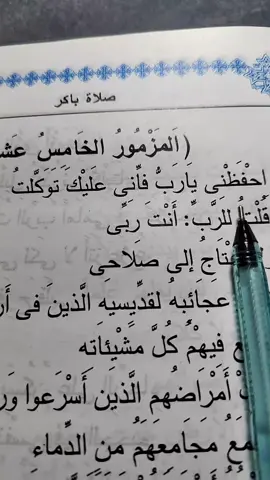 صلاة باكر
(اَلمَزْمُورُ الخَامِسُ عَشَ
احْفَظْنِي يَارَبُّ فَإِنِي عَلَيْكَ تَوَكَّلتُ
قُلْتُ لِلرَّبِّ: أَنْتَ رَبِّى
تَاجُ إِلى صَلاَحَى
عَجَائِبِهُ لقدِّيسِيهِ الَّذينَ فى أَر
فِيهْمُ كُلَّ مشْيْئاته
أَمْرَاضُهم الَّذين أَسْرَعوا وَر
مَعُ مجَامعَهُم مِنَ الدِّماءِ